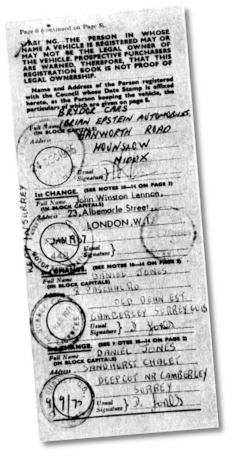 Page 6 (continued on Page 8).
WARNING.—THE PERSON IN WHOSE
NAME A VEHICLE IS REGISTERED MAY OR
MAY NOT BE THE LEGAL OWNER OF
THE VEHICLE. PROSPECTIVE PURCHASERS
ARE WARNED, THEREFORE, THAT THIS
REGISTRATION BOOK IS NOT PROOF OF
LEGAL OWNERSHIP.
Name and Address of the Person registered
with the Council whose Date Stamp is affixed
hereto, as the Person keeping the vehicle, the
particulars of which are given on page 5.
CARS
Full Name
(IN BLOCK CAPITALS)
(BRIAN EPSTEIN AUTOMOBILES
HANWORTH ROAD
Address
HOUNSLOW
MIDDX
Usual
Signature
1st CHANGE. (SEE NOTES ON PAGE 2)
Full Name
(IN BLOCK CAPITALS)
John Winston Lennon,
23, Albemarle Street,
Address
LONDON, W.1.
JAN 1967
Usual
Signature
CHANGE. (SEE NOTES ON PAGE 2)
Full Name
DANIEL JONES
(IN BLOCK CAPITALS)
PASCHAL RD
Address
OLD DEAN EST
CAMBERLEY SURREY
Usual
Signature
D. Jones
CHANGE. (SEE NOTES ON PAGE 2)
Full Name
DANIEL JONES
(IN BLOCK CAPITALS)
SANDHURST CHALET
Address
DEEPCUT NR CAMBERLEY
SURREY
Usual
Signature
D. Jones
SURREY